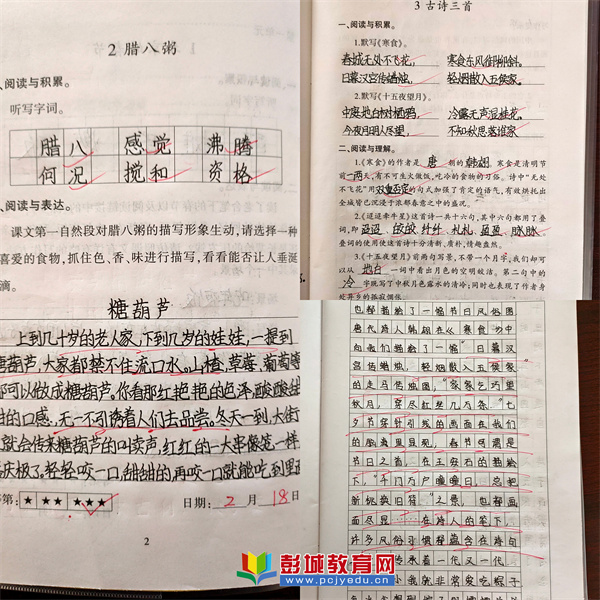 2 腊八粥
阅读与积累。
听写字词。
腊八 感觉 沸腾
何况 搅和 资格
阅读与表达。
课文第一自然段对腊八粥的描写形象生动,请选择一种
喜爱的食物,抓住色、香、味进行描写,看看能否让人垂涎
滴。
糖葫芦
上到几十岁的老人家,下到几岁的娃娃,一提到
糖葫芦,大家都禁不住流口水。山楂,草莓,葡萄等
都可以做成糖葫芦。你看那红艳艳的色泽,酸酸甜
甜的口感,无一不引诱着人们去品尝。冬天一到,大街
就会传来糖葫芦的叫卖声,红红的一大串像笔一样
庆极了。轻轻咬一口,甜甜的再咬一口就能吃到里
第:★★★ ★★★ 日期:2月18日
2
3 古诗三首
一、阅读与积累。
1.默写《寒食》。
春城无处不飞花, 寒食东风御柳斜。
日暮汉宫传蜡烛, 轻烟散入五侯家。
2.默写《十五夜望月》。
中庭地白树栖鸦, 冷露无声湿桂花。
今夜月明人尽望, 不知秋思落谁家
二、阅读与理解。
1.《寒食》的作者是 唐 朝的 韩翃 寒食是清明节
前一两天,有不可生火做饭,吃冷的食物的习俗。诗中“无处
不飞花”用 双重否定 的句式加强了肯定的语气,有效烘托出
全城皆已沉浸于浓郁春意之中的盛况。
2.《迢迢牵牛星》这首诗一共十六句,其中六句都用了叠
词,即 迢迢、皎皎、纤纤、札札、盈盈、脉脉
叠词的使用使这首诗十分清新、质朴,情趣盎然。
3.《十五夜望月》前两句写景,不带一个月字,我们却可
以从 地白 一词中看出月色的空明皎洁。第二句中的
冷 字既写了中秋月色露水的清冷;同时也表现了作者身
处异乡的孤寂惆怅。
也都描绘了一幅节日风俗图
唐代诗人韩翃在《寒食》中
向我们描绘了一幅“日暮汉
宫传蜡烛,轻烟散入五侯家”
的走马传烛图,“家家乞巧望
秋月,穿尽红丝几万条。”七
夕节穿针引线的画面在我们
的脑海里显现,春节可谓是
节日之首,在王安石的描绘
下,“千门万户曈曈日,总把
新桃换旧符”之景,也栩栩
而尽显……在诗人的笔下,
许多风俗习惯都蕴含在诗句
传承着一代又一代。
小我就非常爱吃粽子
彭城教育网
www.pcjyedu.cn